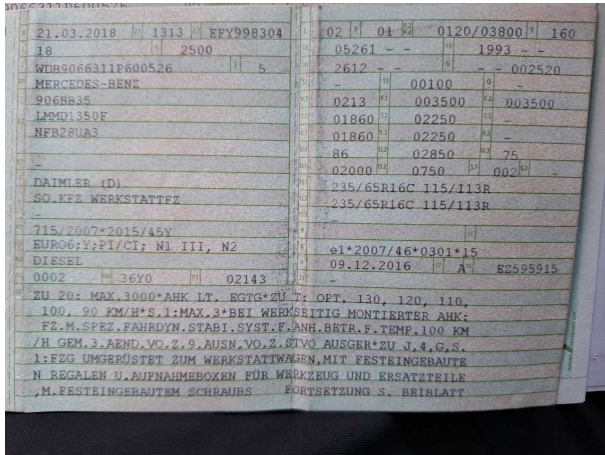 21.03.2018 1313 EFY998304
18 2500
WDB9066311P600526 5
MERCEDES-BENZ
906BB35
LMMD1350F
NFB28UA3
-
DAIMLER (D)
SO.KFZ WERKSTATTFZ
-
715/2007*2015/45Y
EURO6;Y;PI/CI; N1 III, N2
DIESEL
0002 36Y0 02143
02 01 0120/03800 160
05261 - - 1993 - -
2612 - - - 002520
- 00100 -
0213 003500 003500
01860 02250 -
01860 02250 -
86 02850 75
02000 0750 002 -
235/65R16C 115/113R
235/65R16C 115/113R
-
-
e1*2007/46*0301*15
09.12.2016 A EZ595915
ZU 20: MAX.3000*AHK LT. EGTG*ZU T: OPT. 130, 120, 110,
100, 90 KM/H*S.1:MAX.3*BEI WERKSEITIG MONTIERTER AHK:
FZ.M.SPEZ.FAHRDYN.STABI.SYST.F.ANH.BETR.F.TEMP.100 KM
/H GEM.3.AEND.VO.Z.9.AUSN.VO.Z.STVO AUSGER*ZU J,4,G,S.
1:FZG UMGERÜSTET ZUM WERKSTATTWAGEN,MIT FESTEINGEBAUTE
N REGALEN U.AUFNAHMEBOXEN FÜR WERKZEUG UND ERSATZTEILE
,M.FESTEINGEBAUTEM SCHRAUBS FORTSETZUNG S. BEIBLATT